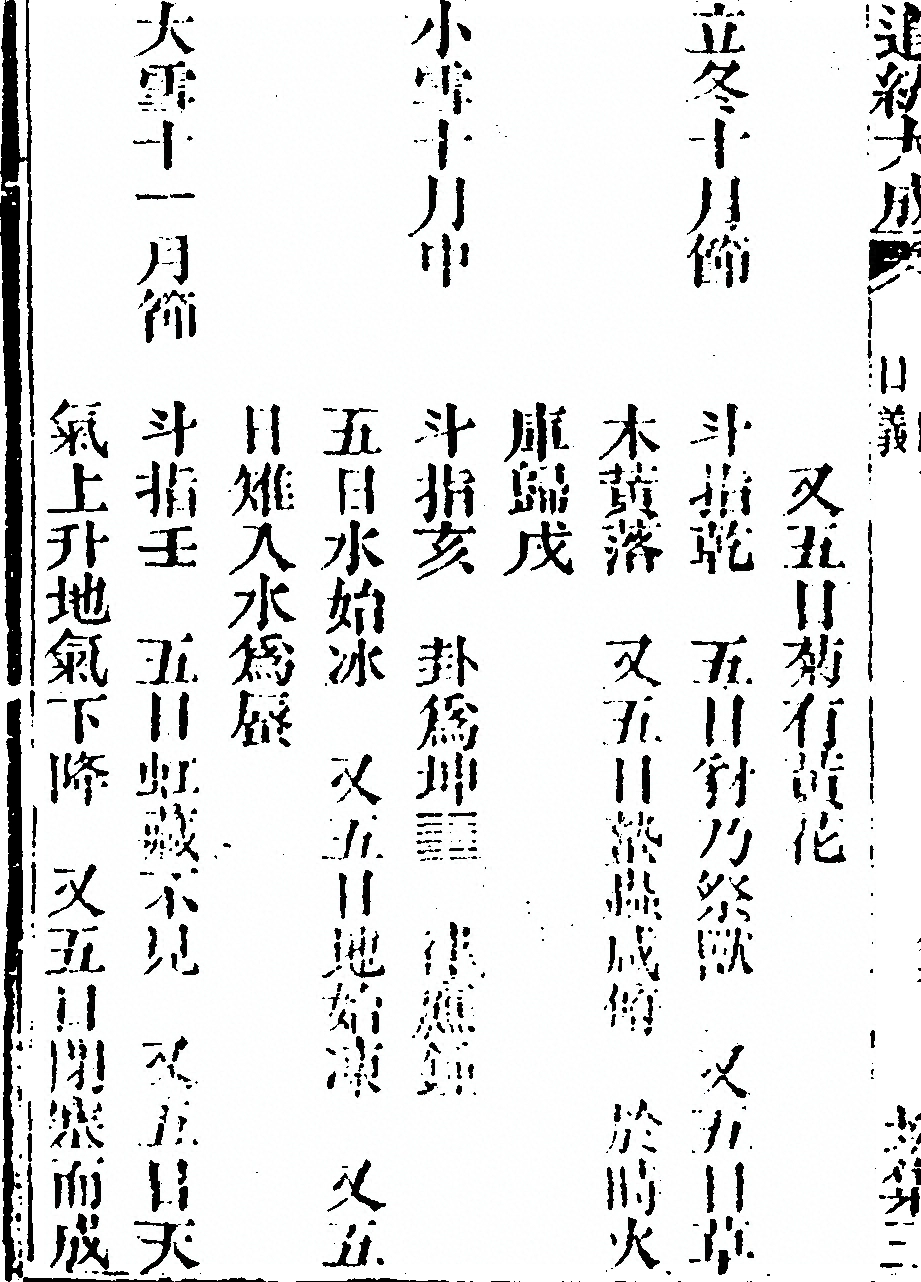 大成
又五日菊有黃花
立冬十月節 斗指乾 五日豺乃祭獸 又五日草
木黃落 又五日蟄蟲咸俯 於時火
庫歸戌
小雪十月中 斗指亥 卦爲坤䷁ 律應鍾
五日水始冰 又五日地始凍 又五
日雉入水爲蜃
大雪十一月節 斗指壬 五日虹藏不見 又五日天
氣上升地氣下降 又五日閉塞而成